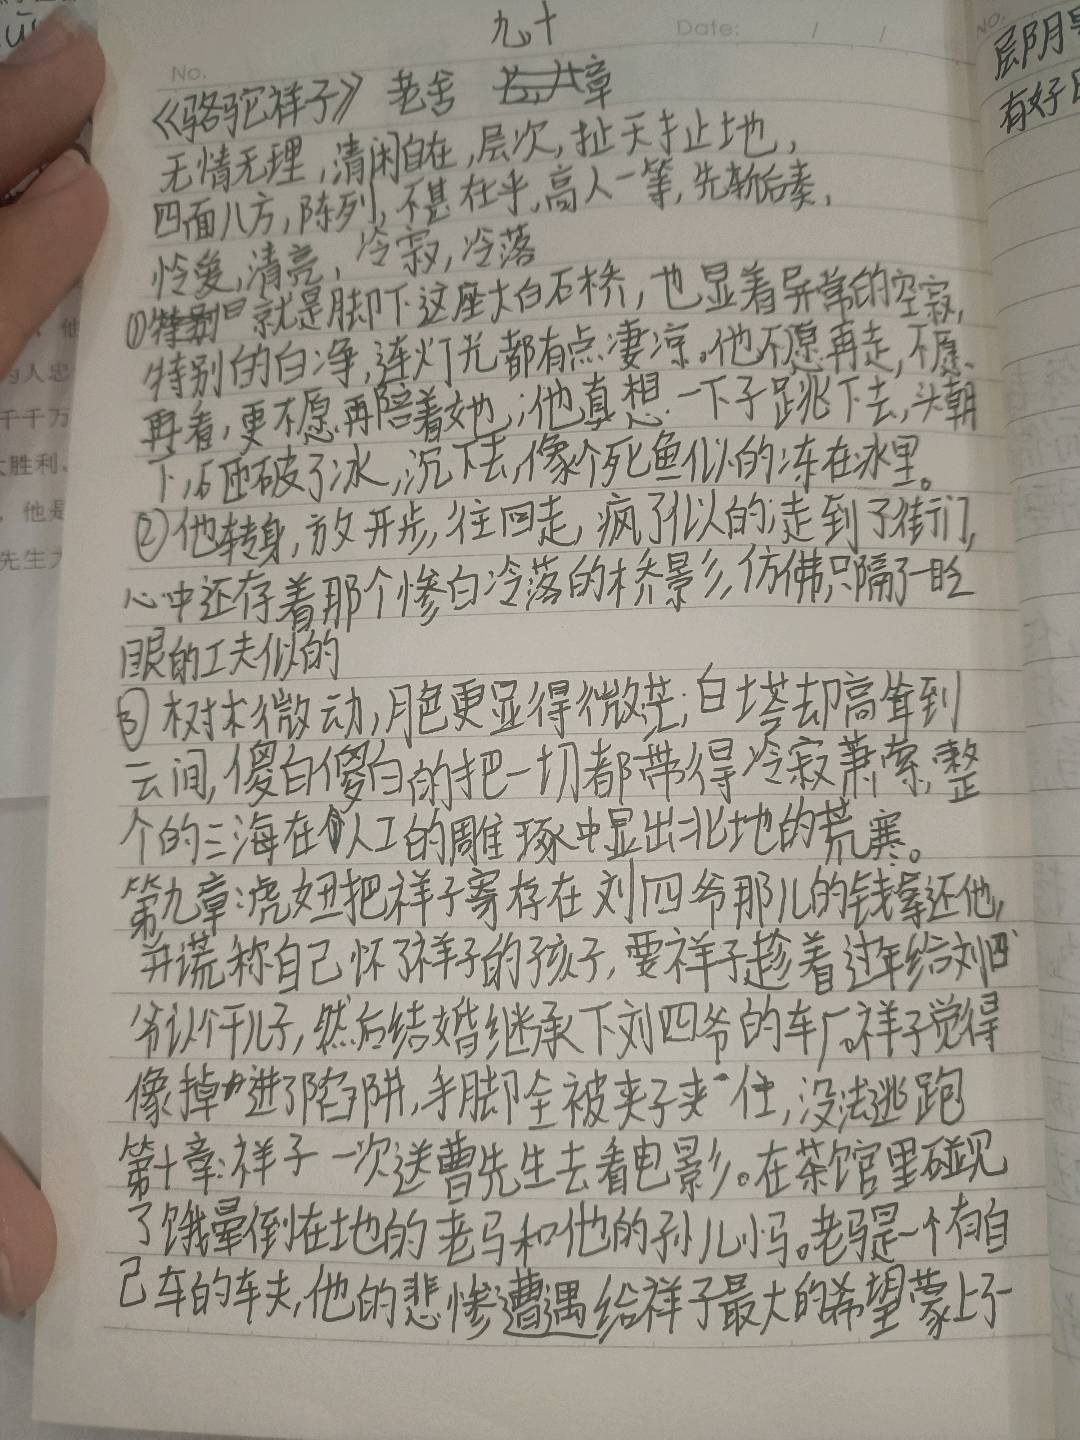 九、十
Date: / /
No.
《骆驼祥子》 老舍 章
无情无理,清闲自在,层次,扯天扯地,
四面八方,陈列,不甚在乎,高人一等,先斩后奏,
怜爱,清亮,冷寂,冷落
①特别就是脚下这座大白石桥,也显着异常的空寂,
特别的白净,连灯光都有点凄凉。他不愿再走,不愿
再看,更不愿再陪着她;他真想一下子跳下去,头朝
下,砸破了冰,沉下去,像个死鱼似的冻在冰里。
②他转身,放开步,往回走,疯了似的;走到了街门,
心中还存着那个惨白冷落的桥影,仿佛只隔了一眨
眼的工夫似的
③树木微动,月色更显得微茫;白塔却高耸到
云间,傻白傻白的把一切都带得冷寂萧索,整
个的三海在人工的雕琢中显出北地的荒寒。
第九章:虎妞把祥子寄存在刘四爷那儿的钱拿还他,
并谎称自己怀了祥子的孩子,要祥子趁着过年给刘四
爷认个干儿子,然后结婚继承下刘四爷的车厂。祥子觉得
像掉进了陷阱,手脚全被夹子夹住,没法逃跑
第十章:祥子一次送曹先生去看电影。在茶馆里碰见
了饿晕倒在地的老马和他的孙儿小马。老马是一个有自
己车的车夫,他的悲惨遭遇给祥子最大的希望蒙上了一
NO.
层阴
有好